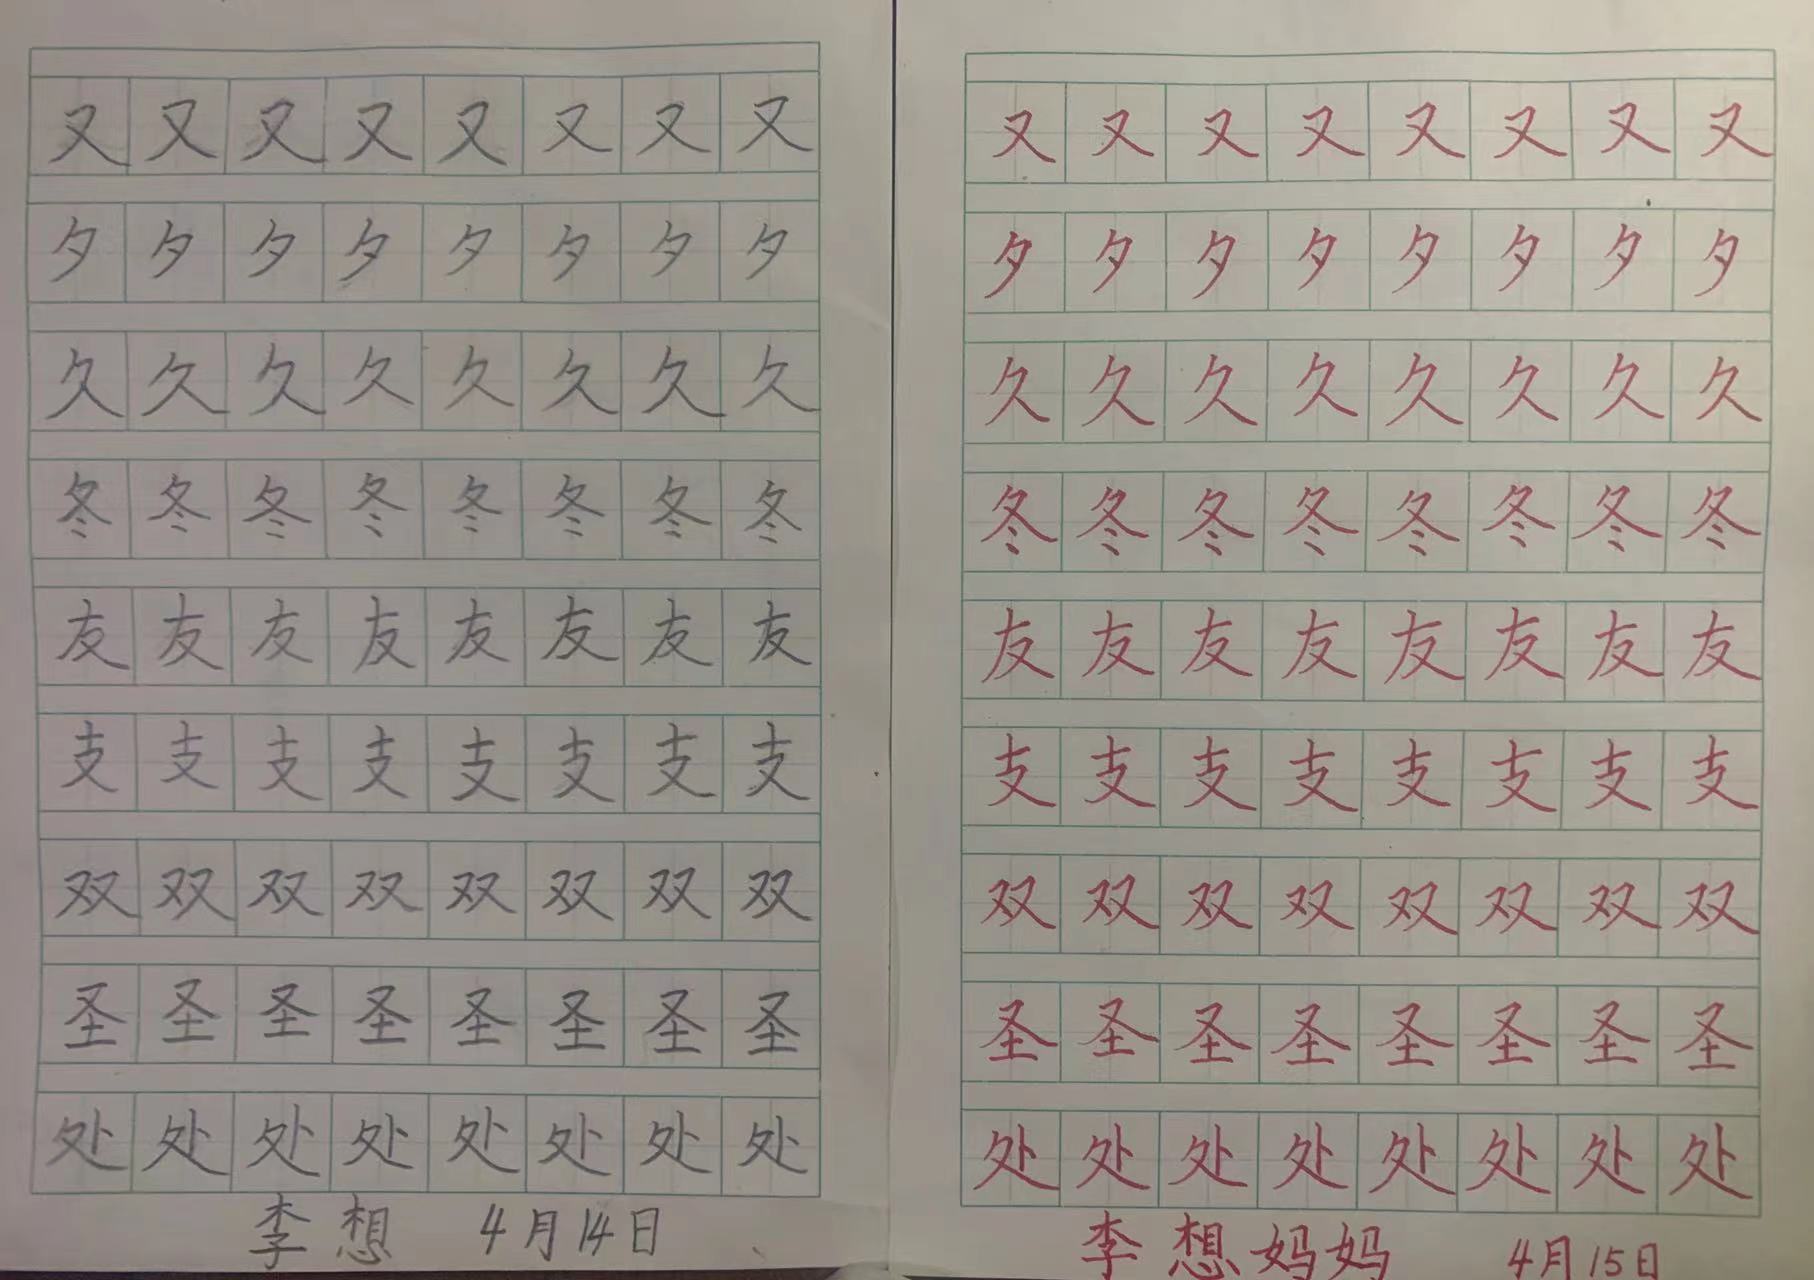 又又又又又又又又
夕夕夕夕夕夕夕夕
久久久久久久久久
冬冬冬冬冬冬冬冬
友友友友友友友友
支支支支支支支支
双双双双双双双双
圣圣圣圣圣圣圣圣
处处处处处处处处
李想 4月14日
又又又又又又又又
夕夕夕夕夕夕夕夕
久久久久久久久久
冬冬冬冬冬冬冬冬
友友友友友友友友
支支支支支支支支
双双双双双双双双
圣圣圣圣圣圣圣圣
处处处处处处处处
李想妈妈 4月15日